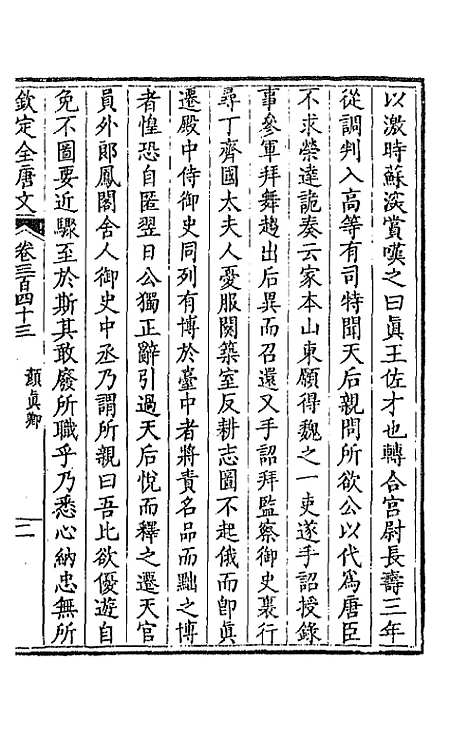 以激時蘇深賞嘆之曰眞王佐才也轉合宮尉長壽三年
從調判入高等有司特聞天后親問所欲公以代爲唐臣
不求榮達詭奏云家本山東願得魏之一吏遂手詔授錄
事參軍拜舞趍出后異而召還又手詔拜監察御史裏行
尋丁齊國太夫人憂服闋築室反耕志圖不起俄而卽眞
遷殿中侍御史同列有博於臺中者將責名品而黜之博
者惶恐自匿翌日公獨正辭引過天后悅而釋之遷天官
員外郎鳳閣舍人御史中丞乃謂所親曰吾比欲優遊自
免不圖要近驟至於斯其敢廢所職乎乃悉心納忠無所
欽定全唐文 卷三百四十三 顏眞卿 二